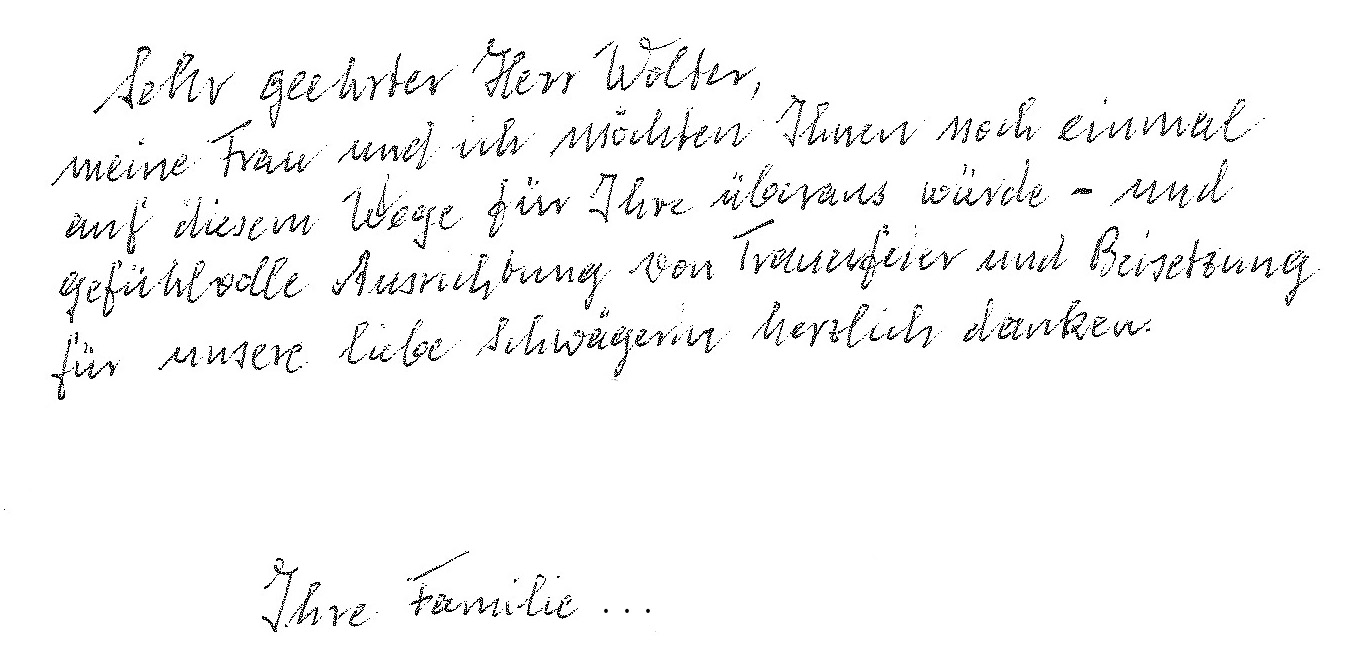 Sehr geehrter Herr Wolter,
meine Frau und ich möchten Ihnen noch einmal
auf diesem Wege für Ihre überaus würde - und
gefühlvolle Ausrichtung von Trauerfeier und Beisetzung
für unsere liebe Schwägerin herzlich danken.
Ihre Familie ...